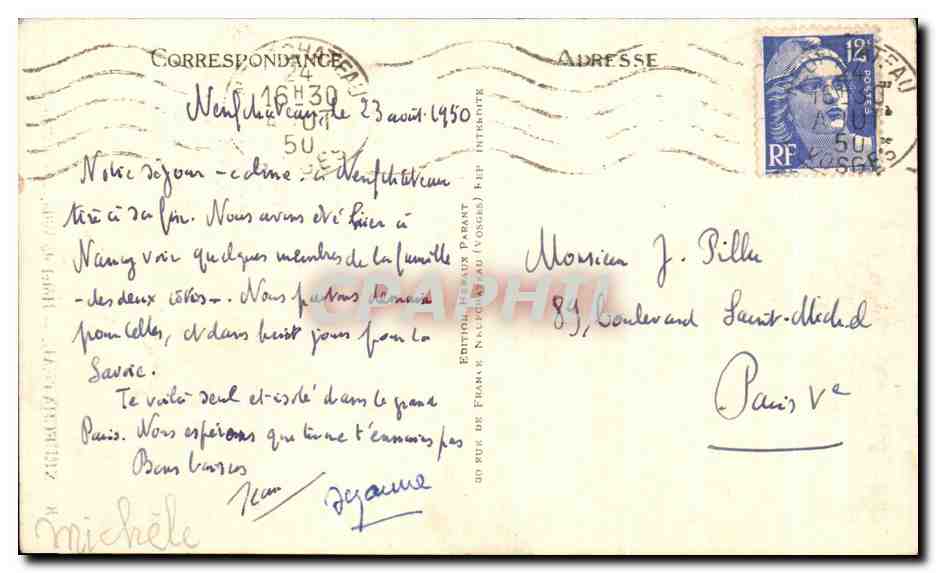 CORRESPONDANCE
ADRESSE
24
16H30
50
12F
POSTES
RF
AOUT
50
VOSGES
Neufchâteau, le 23 août 1950
Notre séjour - calme - à Neufchâteau
tire à sa fin. Nous avons été hier à
Nancy voir quelques membres de la famille
- des deux côtés -. Nous partons demain
pour Celles, et dans huit jours pour la
Savoie.
Te voilà seul et isolé dans le grand
Paris. Nous espérons que tu ne t'ennuies pas
Bons baisers
Jean
Michèle
EDITION HERAUX PARANT
30 RUE DE FRANCE NEUFCHATEAU (VOSGES) REP INTERDITE
Monsieur J. Piller
89, boulevard Saint-Michel
Paris Ve
CPAPHIL